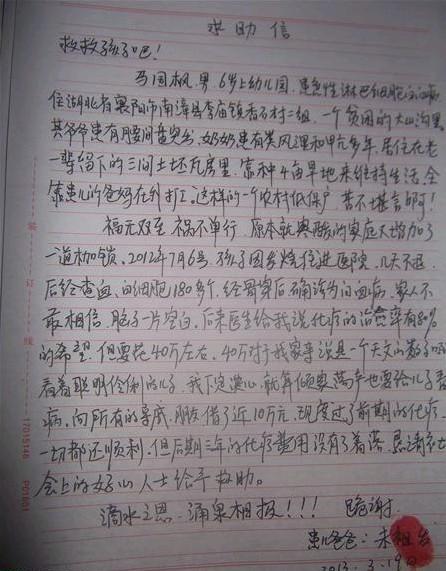 求助信
救救孩子吧!
马国枫,男,6岁上幼儿园,患急性淋巴细胞白血病
住湖北省襄阳市南漳县李庙镇香石村二组,一个贫困的大山沟里
其爷爷患有腰间盘突出,奶奶患有类风湿和甲亢多年,居住在老
一辈留下的三间土坯瓦房里,靠种4亩旱地来维持生活,全
靠患儿的爸妈在外打工。这样的一个农村低保户,苦不堪言啊!
福无双至,祸不单行,原本就艰难的家庭又增加了
一道枷锁。2012年7月6号,孩子因发烧住进医院,几天不退,
后经查血,白细胞180多个,经骨穿后确诊为白血病。家人不
敢相信,脑子一片空白。后来医生给我说化疗的治愈率有80%
的希望,但要花40万左右,40万对于我家来说是一个天文的数字啊
看着聪明伶俐的儿子,我下定决心,就算倾家荡产也要给儿子看
病,向所有的亲戚、朋友借了近10万元,现度过了前期的化疗,
一切都还顺利,但后期三年的化疗费用没有了着落,恳请社
会上的好心人士给予救助。
滴水之恩,涌泉相报!!!跪谢
患儿爸爸:朱祖
2013.3.19日
装订线
17015146 P01601